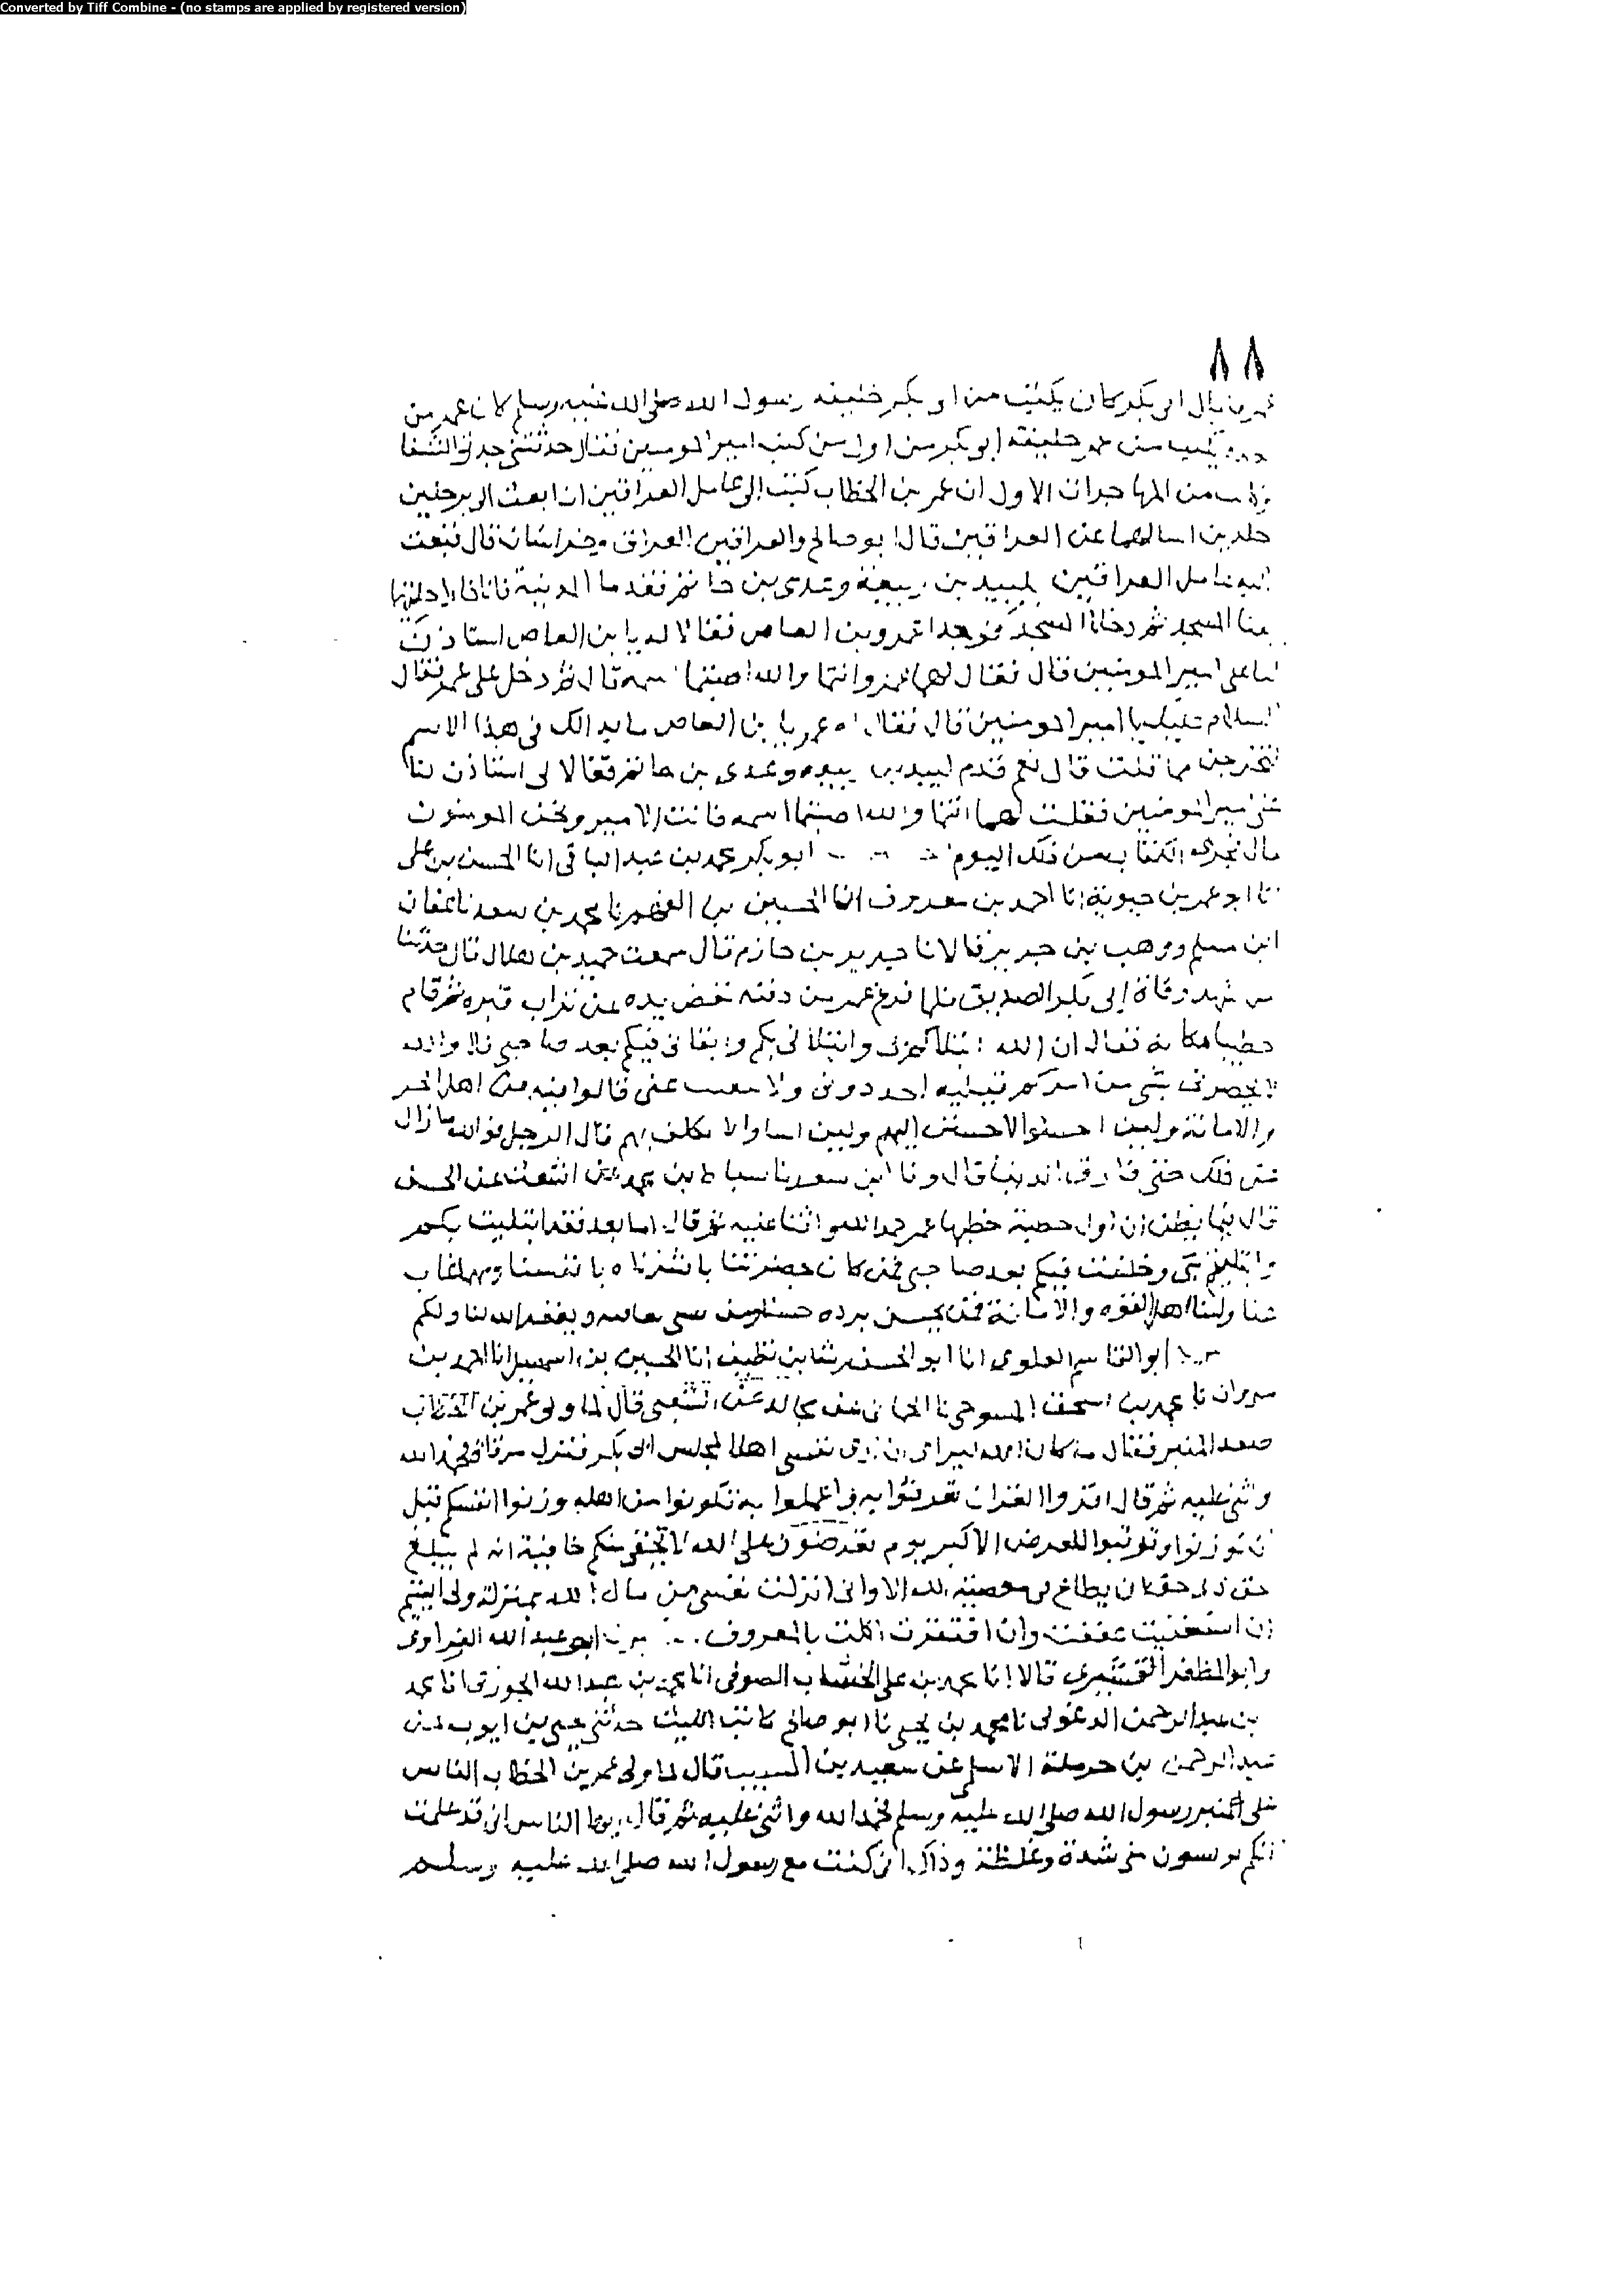 Converted by Tiff Combine - (no stamps are applied by registered version)
٨٨
بال ابى بكر كان يكتب من ابى بكر خليفة رسول الله صلى الله عليه وسلم كان عمر من
يكتب من عمر خليفة ابو بكر من اول من كتب امير المومنين فقال حدثتنى جدتى الشفا
من المهاجرات الاول ان عمر بن الخطاب كتب الى عامل العراقين ان ابعث الى برجلين
جلدين اسالهما عن العراقين قال ابو صالح والعراقين العراق وخراسان قال فبعث
اليه عامل العراقين بلبيد بن ربيعة وعدى بن حاتم فقدما المدينة فاناخا راحلتيهما
بفنا المسجد ثم دخلا المسجد فوجدا عمرو بن العاص فقالا له يا بن العاص استاذن
لنا على امير المومنين قال فقال لهما عمرو انتما والله اصبتما اسمه قال ثم دخل على عمر فقال
السلام عليك يا امير المومنين قال فقال له عمر يا بن العاص ما بدا لك فى هذا الاسم
لتخرجن مما قلت قال نعم قدم لبيد بن ربيعه وعدى بن حاتم فقالا لى استاذن لنا
على امير المومنين فقلت لهما انتما والله اصبتما اسمه فانت الامير ونحن المومنون
قال فجرى الكتاب من ذلك اليوم ابو بكر محمد بن عبد الباقى انا الحسن بن على
انا ابو عمر بن حيوية انا احمد بن معروف انا الحسين بن الفهم نا محمد بن سعد نا عفان
ابن مسلم ووهب بن جرير قالا نا جرير بن حازم قال سمعت حميد بن هلال قال حدثنا
من شهد وفاة ابى بكر الصديق فلما فرغ عمر من دفنه نفض يده عن تراب قبره ثم قام
خطيبا مكانه فقال ان الله ابتلاكم بى وابتلانى بكم وابقانى فيكم بعد صاحبى فلا والله
لا يحضرنى شى من امركم فيليه احد دونى ولا يتغيب عنى فالوا فيه من اهل الجز
والامانة ولين احسنوا لاحسنن اليهم ولين اساوا لانكلن بهم قال الرجل فوالله ما زال
على ذلك حتى فارق الدنيا قال ونا ابن سعد نا اسباط بن محمد عن اشعث عن الحسن
قال فيما يظن ان اول خطبة خطبها عمر حمد الله واثنا عليه ثم قال اما بعد فقد ابتليت بكم
وابتليتم بى وخلفت فيكم بعد صاحبى فمن كان بحضرتنا باشرناه بانفسنا ومهما غاب
عنا ولينا اهل القوه والامانة فمن يحسن نزده حسنا ومن يسى نعاقبه ويغفر الله لنا ولكم
ابو القاسم العلوى انا ابو الحسن رشا بن نظيف انا الحسين بن اسمعيل انا احمد بن
مروان نا محمد بن اسحق المسوحى نا الحمانى عن مجالد عن الشعبى قال لما ولى عمر بن الخطاب
صعد المنبر فقال ما كان الله ليرانى ان ارى نفسى اهلا لمجلس ابى بكر فنزل مرقاة فحمد الله
واثنى عليه ثم قال اقروا القران تعرفوا به واعملوا به تكونوا من اهله وزنوا انفسكم قبل
ان توزنوا وتزينوا للعرض الاكبر يوم تعرضون على الله لا تخفى منكم خافية انه لم يبلغ
حق ذى حق ان يطاع فى معصية الله الا وانى انزلت نفسى من مال الله بمنزلة ولى اليتيم
ان استغنيت عففت وان افتقرت اكلت بالمعروف ابو عبد الله الفراوى
وابو المظفر القشيرى قالا انا محمد بن على الخشاب الصوفى انا محمد بن عبد الله الجوزقى انا محمد
بن عبد الرحمن الدغولى نا محمد بن يحيى نا ابو صالح كاتب الليث حدثنى يحيى بن ايوب عن
عبد الرحمن بن حرملة الاسلمى عن سعيد بن المسيب قال لما ولى عمر بن الخطاب الناس
على المنبر رسول الله صلى الله عليه وسلم فحمد الله واثنى عليه ثم قال ايها الناس انى قد علمت
انكم تونسون منى شدة وغلظة وذاك انى كنت مع رسول الله صلى الله عليه وسلم